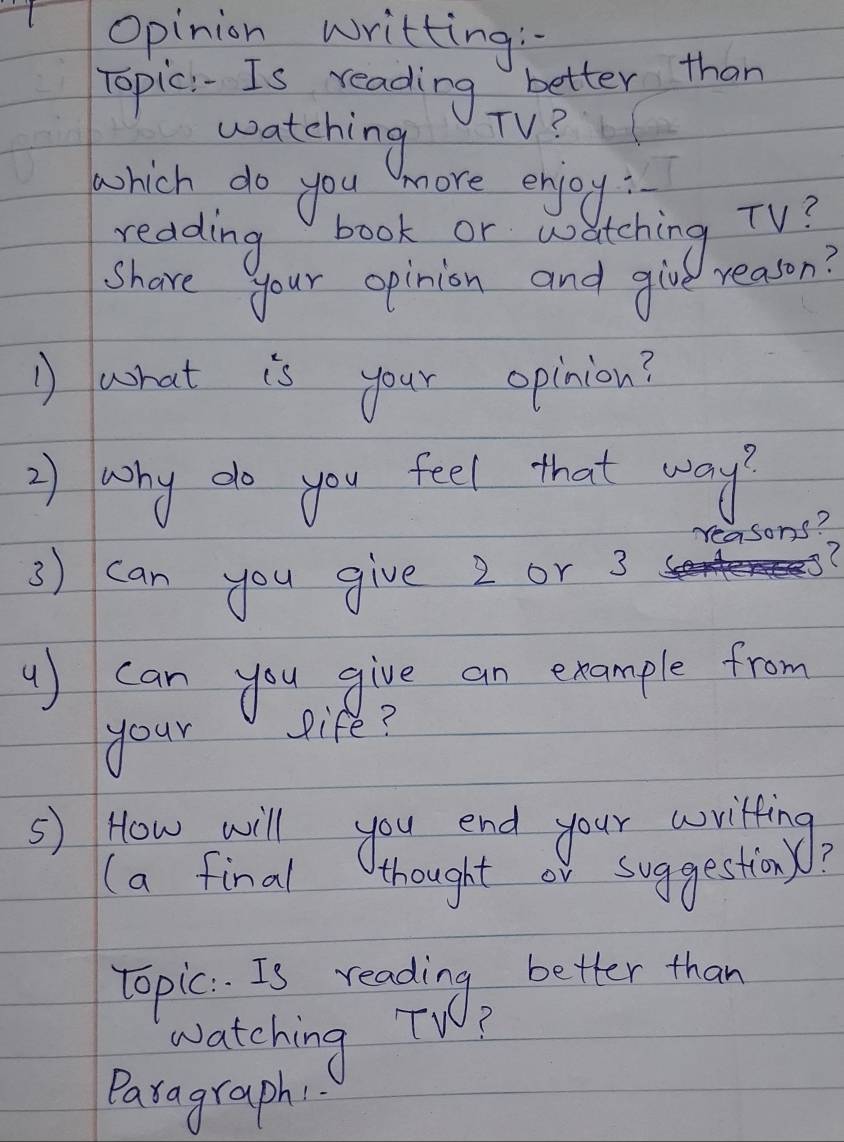 Opinion writting:-
Topic:- Is reading better than
watching TV?
which do you more enjoy:-
reading book or watching TV?
Share your opinion and give reason?
1) what is your opinion?
2) why do you feel that way?
reasons?
3) can you give 2 or 3 sentences?
4) can you give an example from
your life?
5) How will you end your writting
(a final thought or suggestion)?
Topic:- Is reading better than
watching TV?
Paragraph:-